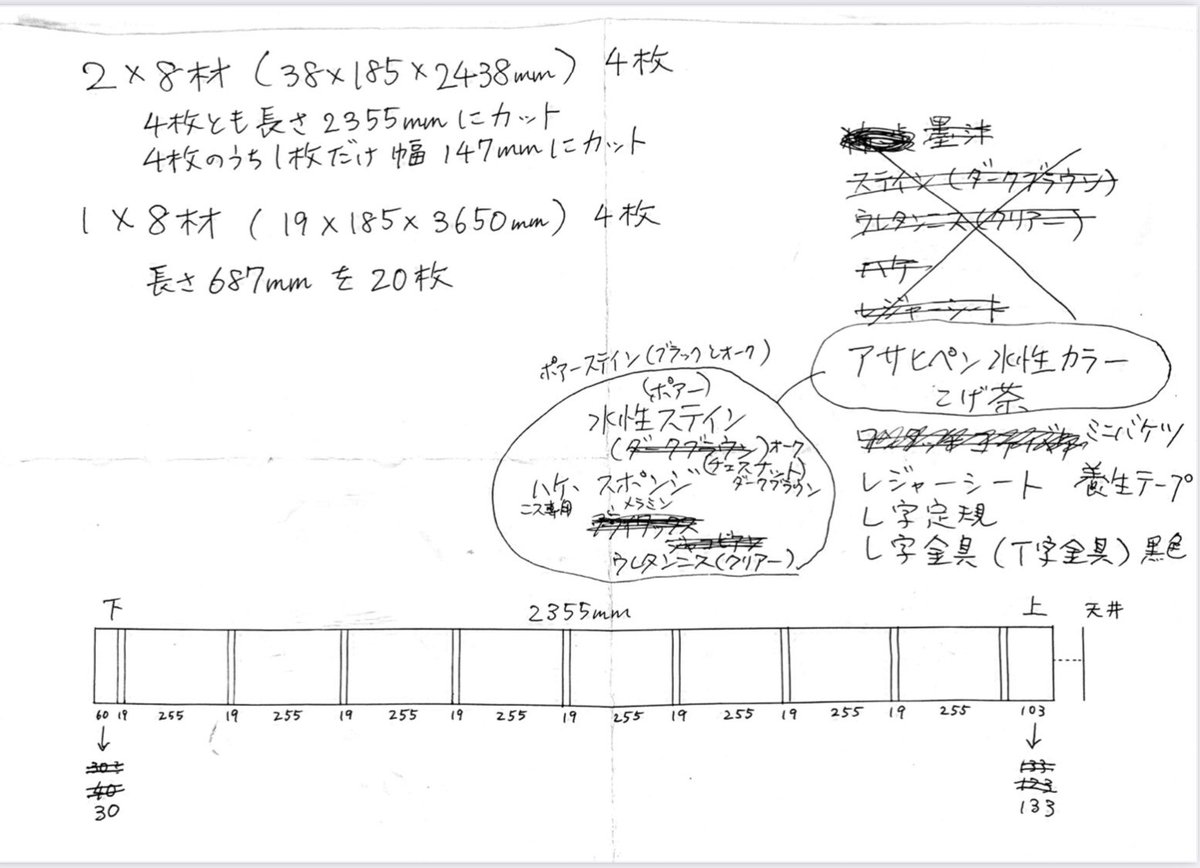 2×8材 (38×185×2438mm) 4枚
4枚とも長さ2355mmにカット
4枚のうち1枚だけ幅147mmにカット
1×8材 (19×185×3650mm) 4枚
長さ687mmを20枚
墨汁
ステイン(ダークブラウン)
ウレタンニス(クリアー)
ハケ
レジャーシート
アサヒペン水性カラー
こげ茶
ミニバケツ
レジャーシート 養生テープ
L字定規
L字金具(T字金具)黒色
ポアーステイン(ブラックとオーク)
(ポアー)
水性ステイン
(ダークブラウン)オーク
(チェスナット)
ダークブラウン
ハケ、スポンジ
ニス専用 メラミン
ブライワックス
ジャコビアン
ウレタンニス(クリアー)
下 2355mm 上 天井
60 19 255 19 255 19 255 19 255 19 255 19 255 19 255 19 255 103
↓ ↓
303 133
40 123
30 133